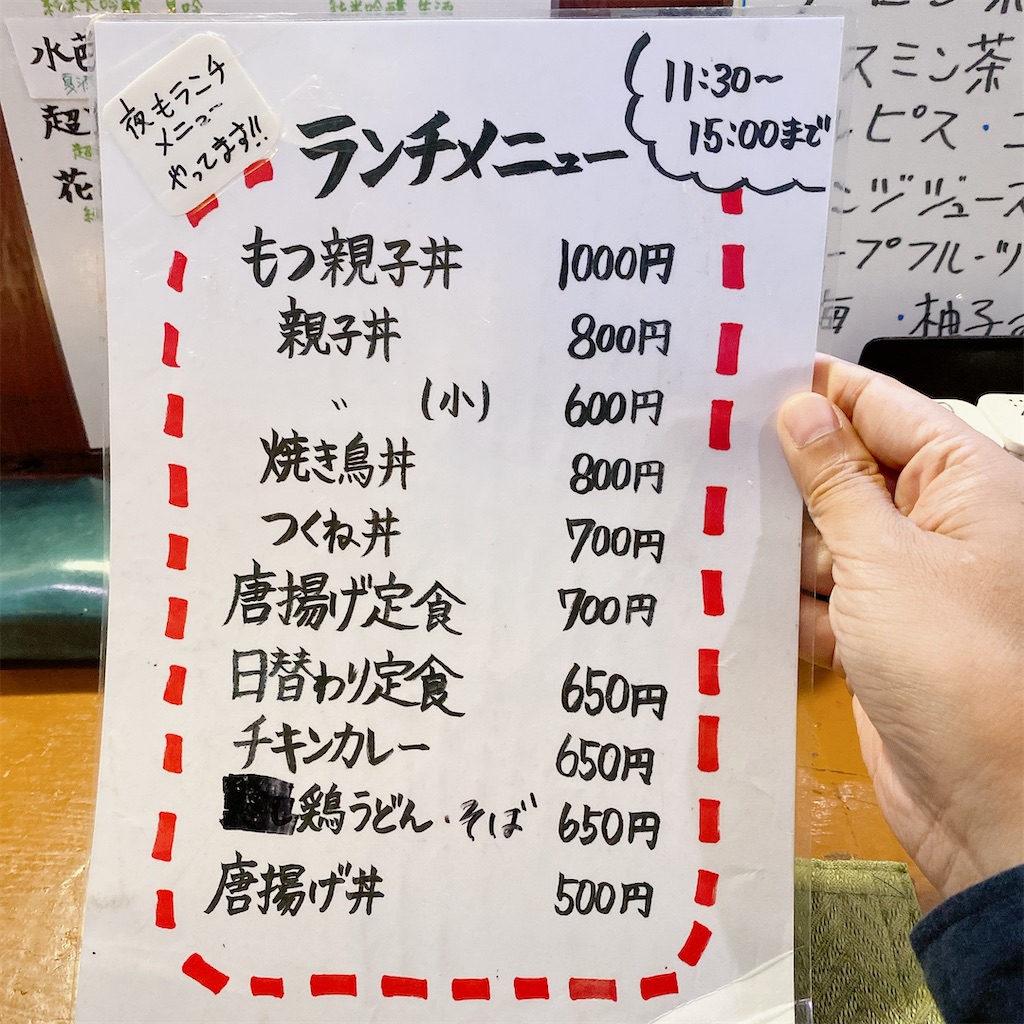 夜もランチ
メニュー
やってます!!
ランチメニュー
11:30〜
15:00まで
もつ親子丼 1000円
親子丼 800円
〃 (小) 600円
焼き鳥丼 800円
つくね丼 700円
唐揚げ定食 700円
日替わり定食 650円
チキンカレー 650円
鶏うどん・そば 650円
唐揚げ丼 500円
水芭
超
花
スミン茶
ピス・
ンジジュース
ープフルーツ
梅 ・柚子